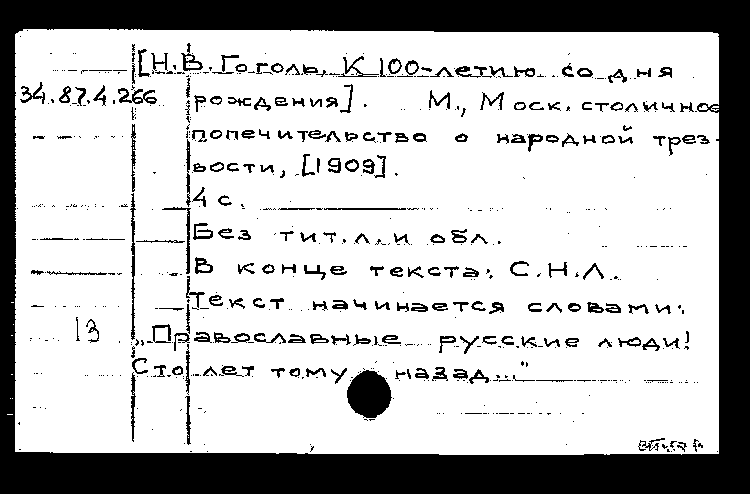 [Н.В. Гоголь. К 100-летию со дня
34.87.4.266 рождения]. М., Моск. столичное
попечительство о народной трез-
вости, [1909].
4 с.
Без тит.л. и обл.
В конце текста: С.Н.Л.
Текст начинается словами:
13 „Православные русские люди!
Сто лет тому назад..."